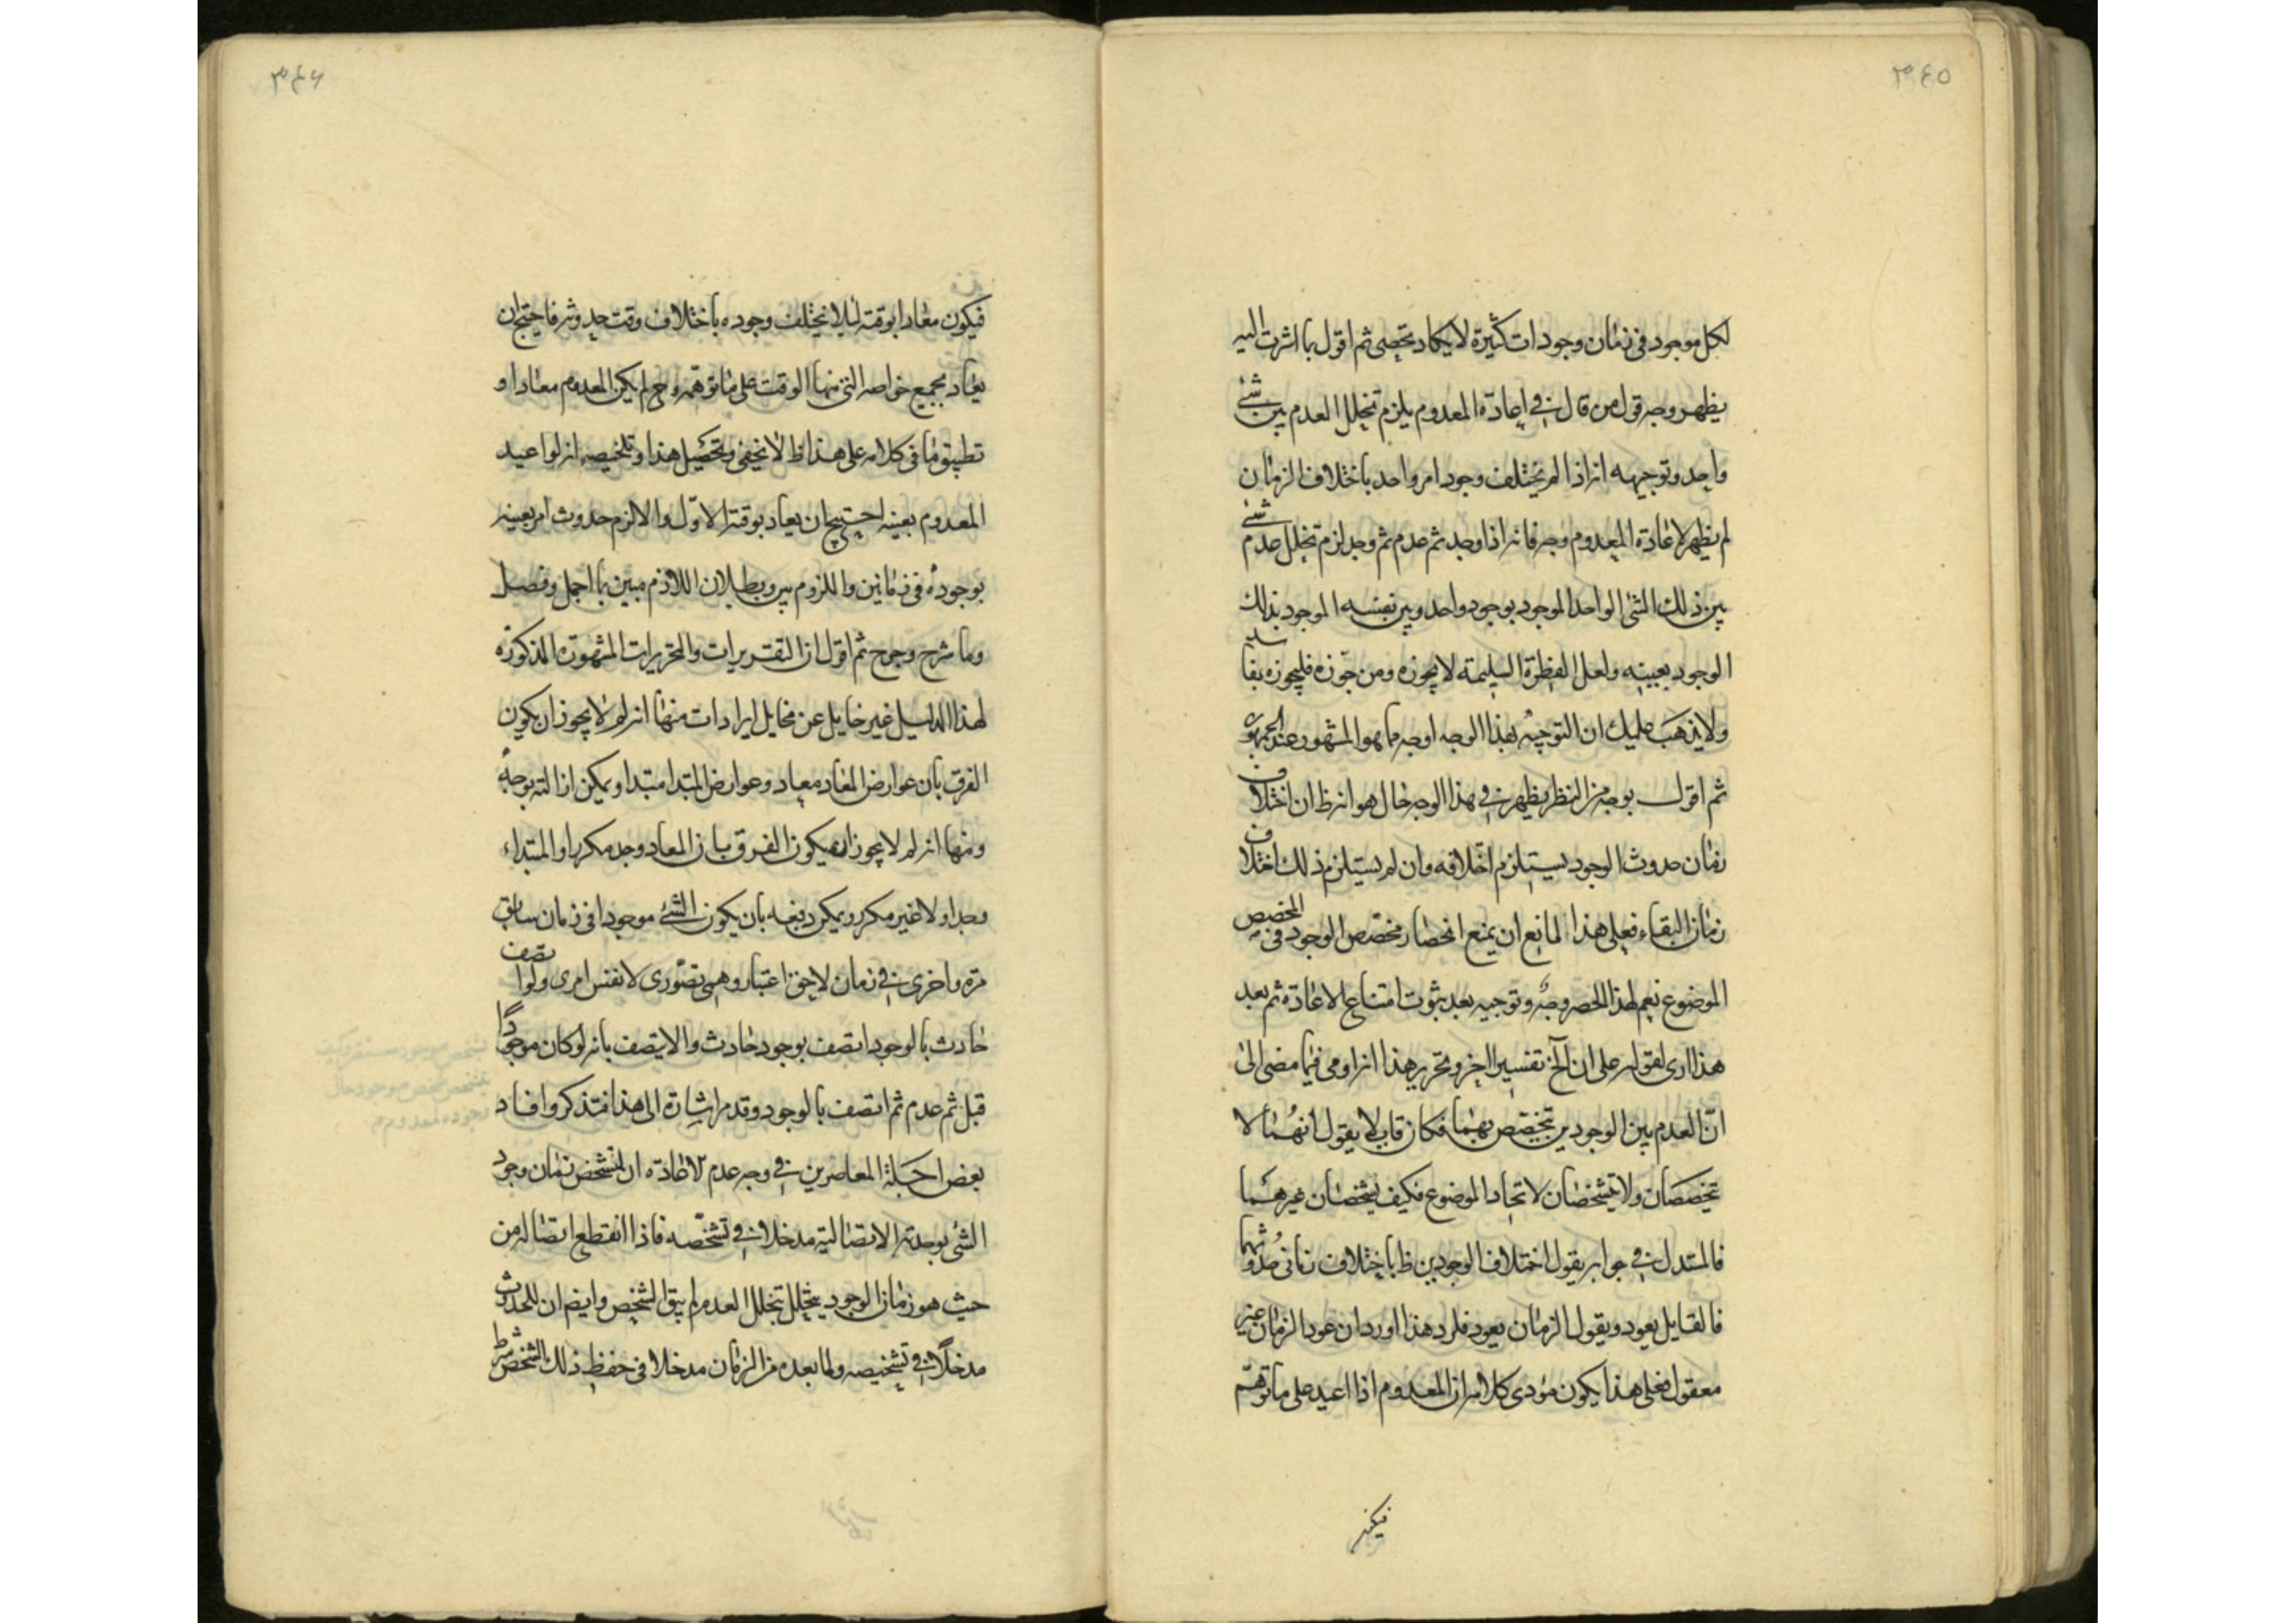 ٣٤٥
لكل موجود فى زمان وجودات كثيرة لا يكاد تحصى ثم اقول بما اشرت اليه
يظهر وجه قول من قال فى اعادة المعدوم يلزم تخلل العدم بين شئ
واحد وتوجيهه انه اذا لم يختلف وجود امر واحد باختلاف الزمان
لم يظهر لاعادة المعدوم وجه فانه اذا وجد ثم عدم ثم وجد لزم تخلل عدم شئ
بين ذلك الشئ الواحد الموجود بوجود واحد وبين نفسه الموجود بذلك
الوجود بعينه ولعل الفطرة السليمة لا يجوزه ومن جوزه فليجوزه
ولا يذهب عليك ان التوجيه بهذا الوجه اوجه مما هو المشهور عند الجمهور
ثم اقول بوجه من النظر يظهر فى هذا الوجه خال هو انه ظ ان اختلاف
زمان حدوث الوجود يستلزم اختلافه وان لم يستلزم ذلك اختلاف
زمان البقاء فعلى هذا المانع ان يمنع انحصار مخصص الوجود فى المخصص
الموضوع نعم لهذا الحصر وجه وتوجيه بعد ثبوت امتناع الاعادة ثم بعد
هذا ارى لقوله على ان الخ تفسيرا اخر وتحرير هذا انه اومى فيما مضى الى
ان العدم بين الوجودين تخصص بهما فكان قايلا يقول انهما لا
تخصصان ولا يتشخصان لاتحاد الموضوع فكيف يشخصان غيرهما
فالمستدل فى جوابه يقول اختلاف الوجودين ظ باختلاف زمانى حدوثهما
فالقايل يعود ويقول الزمان يعود فلرد هذا اورد ان عود الزمان غير
معقول فعلى هذا يكون مؤدى كلامه ان المعدوم اذا اعيد على ما توهم
فيكون
٣٤٦
فيكون معادا بوقته لئلا يختلف وجوده باختلاف وقت حدوثه فاحتج ان
يعاد بجميع خواصه التى منها الوقت على ما توهمه وح لم يكن المعدوم معادا و
تطبيق ما فى كلامه على هذا ظ لا يخفى وتحصيل هذا وتلخيصه انه لو اعيد
المعدوم بعينه احتيج ان يعاد بوقته الاول والا لزم حدوث امر بعينه
بوجوده فى زمانين واللزوم بين وبطلان اللازم مبين بما اجمل وفصل
وما شرح وجرح ثم اقول ان التقريرات والتحريرات المشهورة المذكورة
لهذا الدليل غير خايل عن مخايل ايرادات منها انه لم لا يجوز ان يكون
الفرق بان عوارض المعاد معاد وعوارض المبتدا مبتدا ويمكن ازالته بوجه
ومنها انه لم لا يجوز ان يكون الفرق بان المعاد وجد مكررا والمبتداء
وجد اولا غير مكرر ويمكن دفعه بان يكون الشئ موجودا فى زمان سابق
مرة واخرى فى زمان لاحق اعتبار وهمى تصورى لا نفس امرى ولو اتصف
حادث بالوجود اتصف بوجود حادث والا لا يتصف بانه لو كان موجودا
قبل ثم عدم ثم اتصف بالوجود وقد مر اشارة الى هذا فتذكر وافاد
بعض اجلة المعاصرين فى وجه عدم الاعادة ان لتشخص زمان وجود
الشئ بوحدته الاتصالية مدخلا فى تشخصه فاذا انقطع اتصاله من
حيث هو زمان الوجود بتخلل العدم لم يبق الشخص وايضا ان للحدوث
مدخلا فى تشخيصه ولما بعده من الزمان مدخلا فى حفظ ذلك التشخص شرط